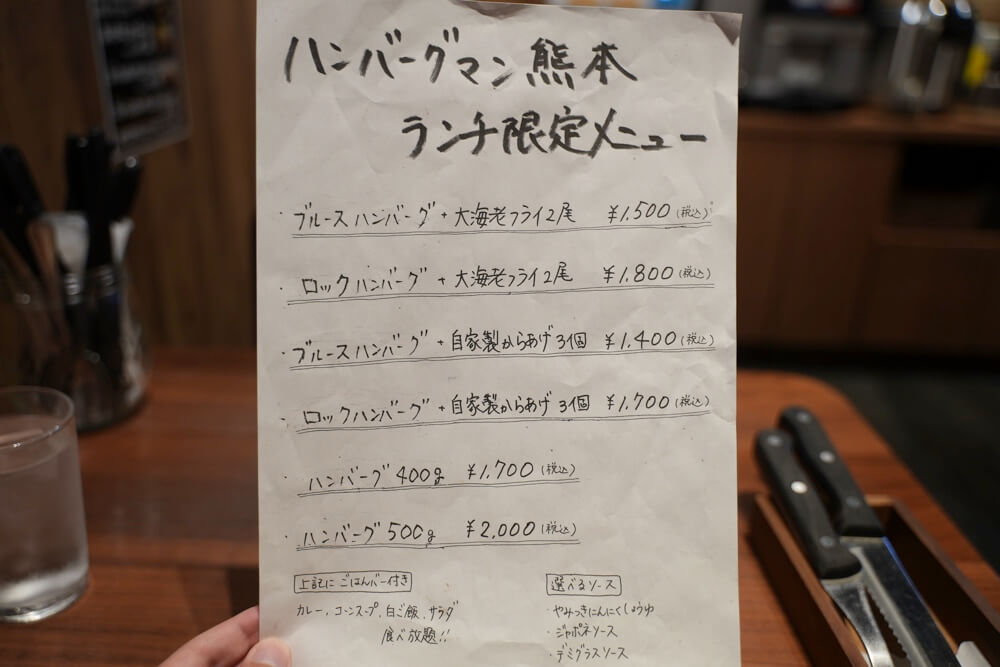 ハンバーグマン熊本
ランチ限定メニュー
・ブルースハンバーグ + 大海老フライ2尾 ¥1.500(税込)
・ロックハンバーグ + 大海老フライ2尾 ¥1.800(税込)
・ブルースハンバーグ + 自家製からあげ3個 ¥1.400(税込)
・ロックハンバーグ + 自家製からあげ3個 ¥1.700(税込)
・ハンバーグ400g ¥1.700(税込)
・ハンバーグ500g ¥2,000(税込)
上記に ごはんバー付き
カレー、コーンスープ、白ご飯、サラダ
食べ放題!!
選べるソース
・やみつきにんにくしょうゆ
・ジャポネソース
・デミグラスソース